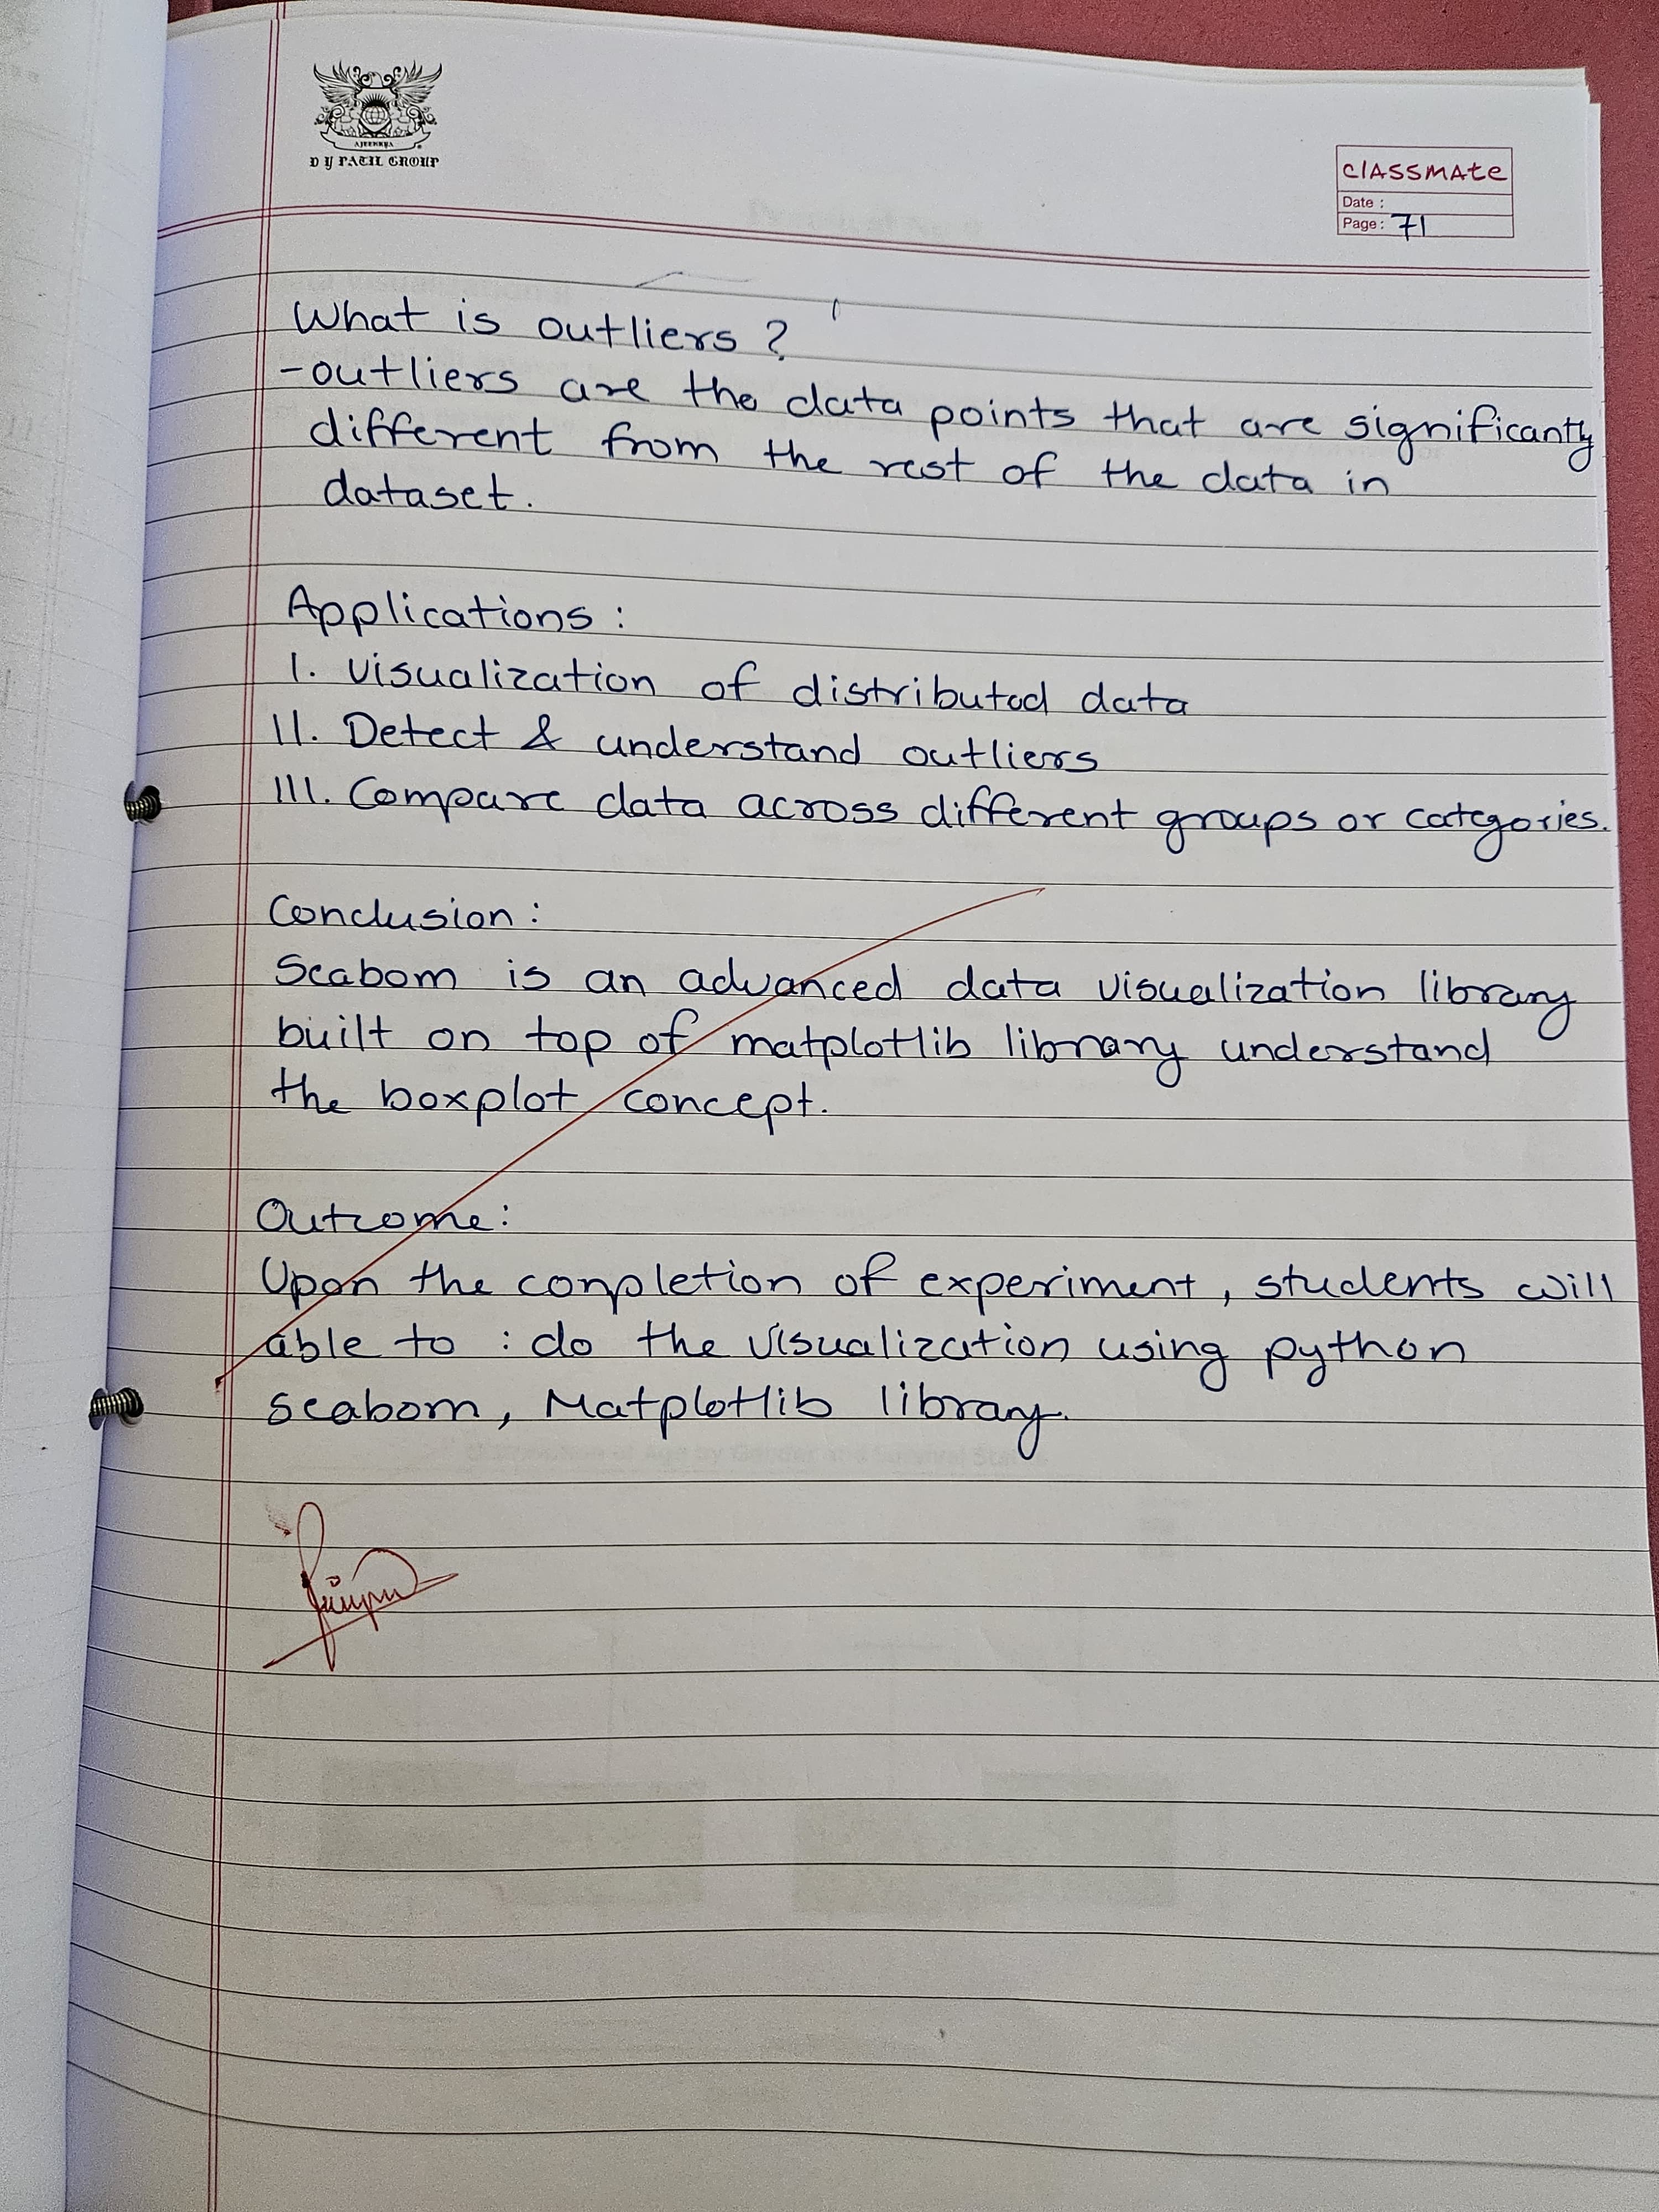 AJEENKYA
D Y PATIL GROUP
classmate
Date :
Page : 71
What is outliers ?
- outliers are the data points that are significanty
different from the rest of the data in
dataset.
Applications :
I. visualization of distributed data
II. Detect & understand outliers
III. Compare data across different groups or categories.
Conclusion :
Seaborn is an advanced data visualization library
built on top of matplotlib library understand
the boxplot concept.
Outcome :
Upon the completion of experiment, students will
able to : do the visualization using python
seaborn, Matplotlib library.